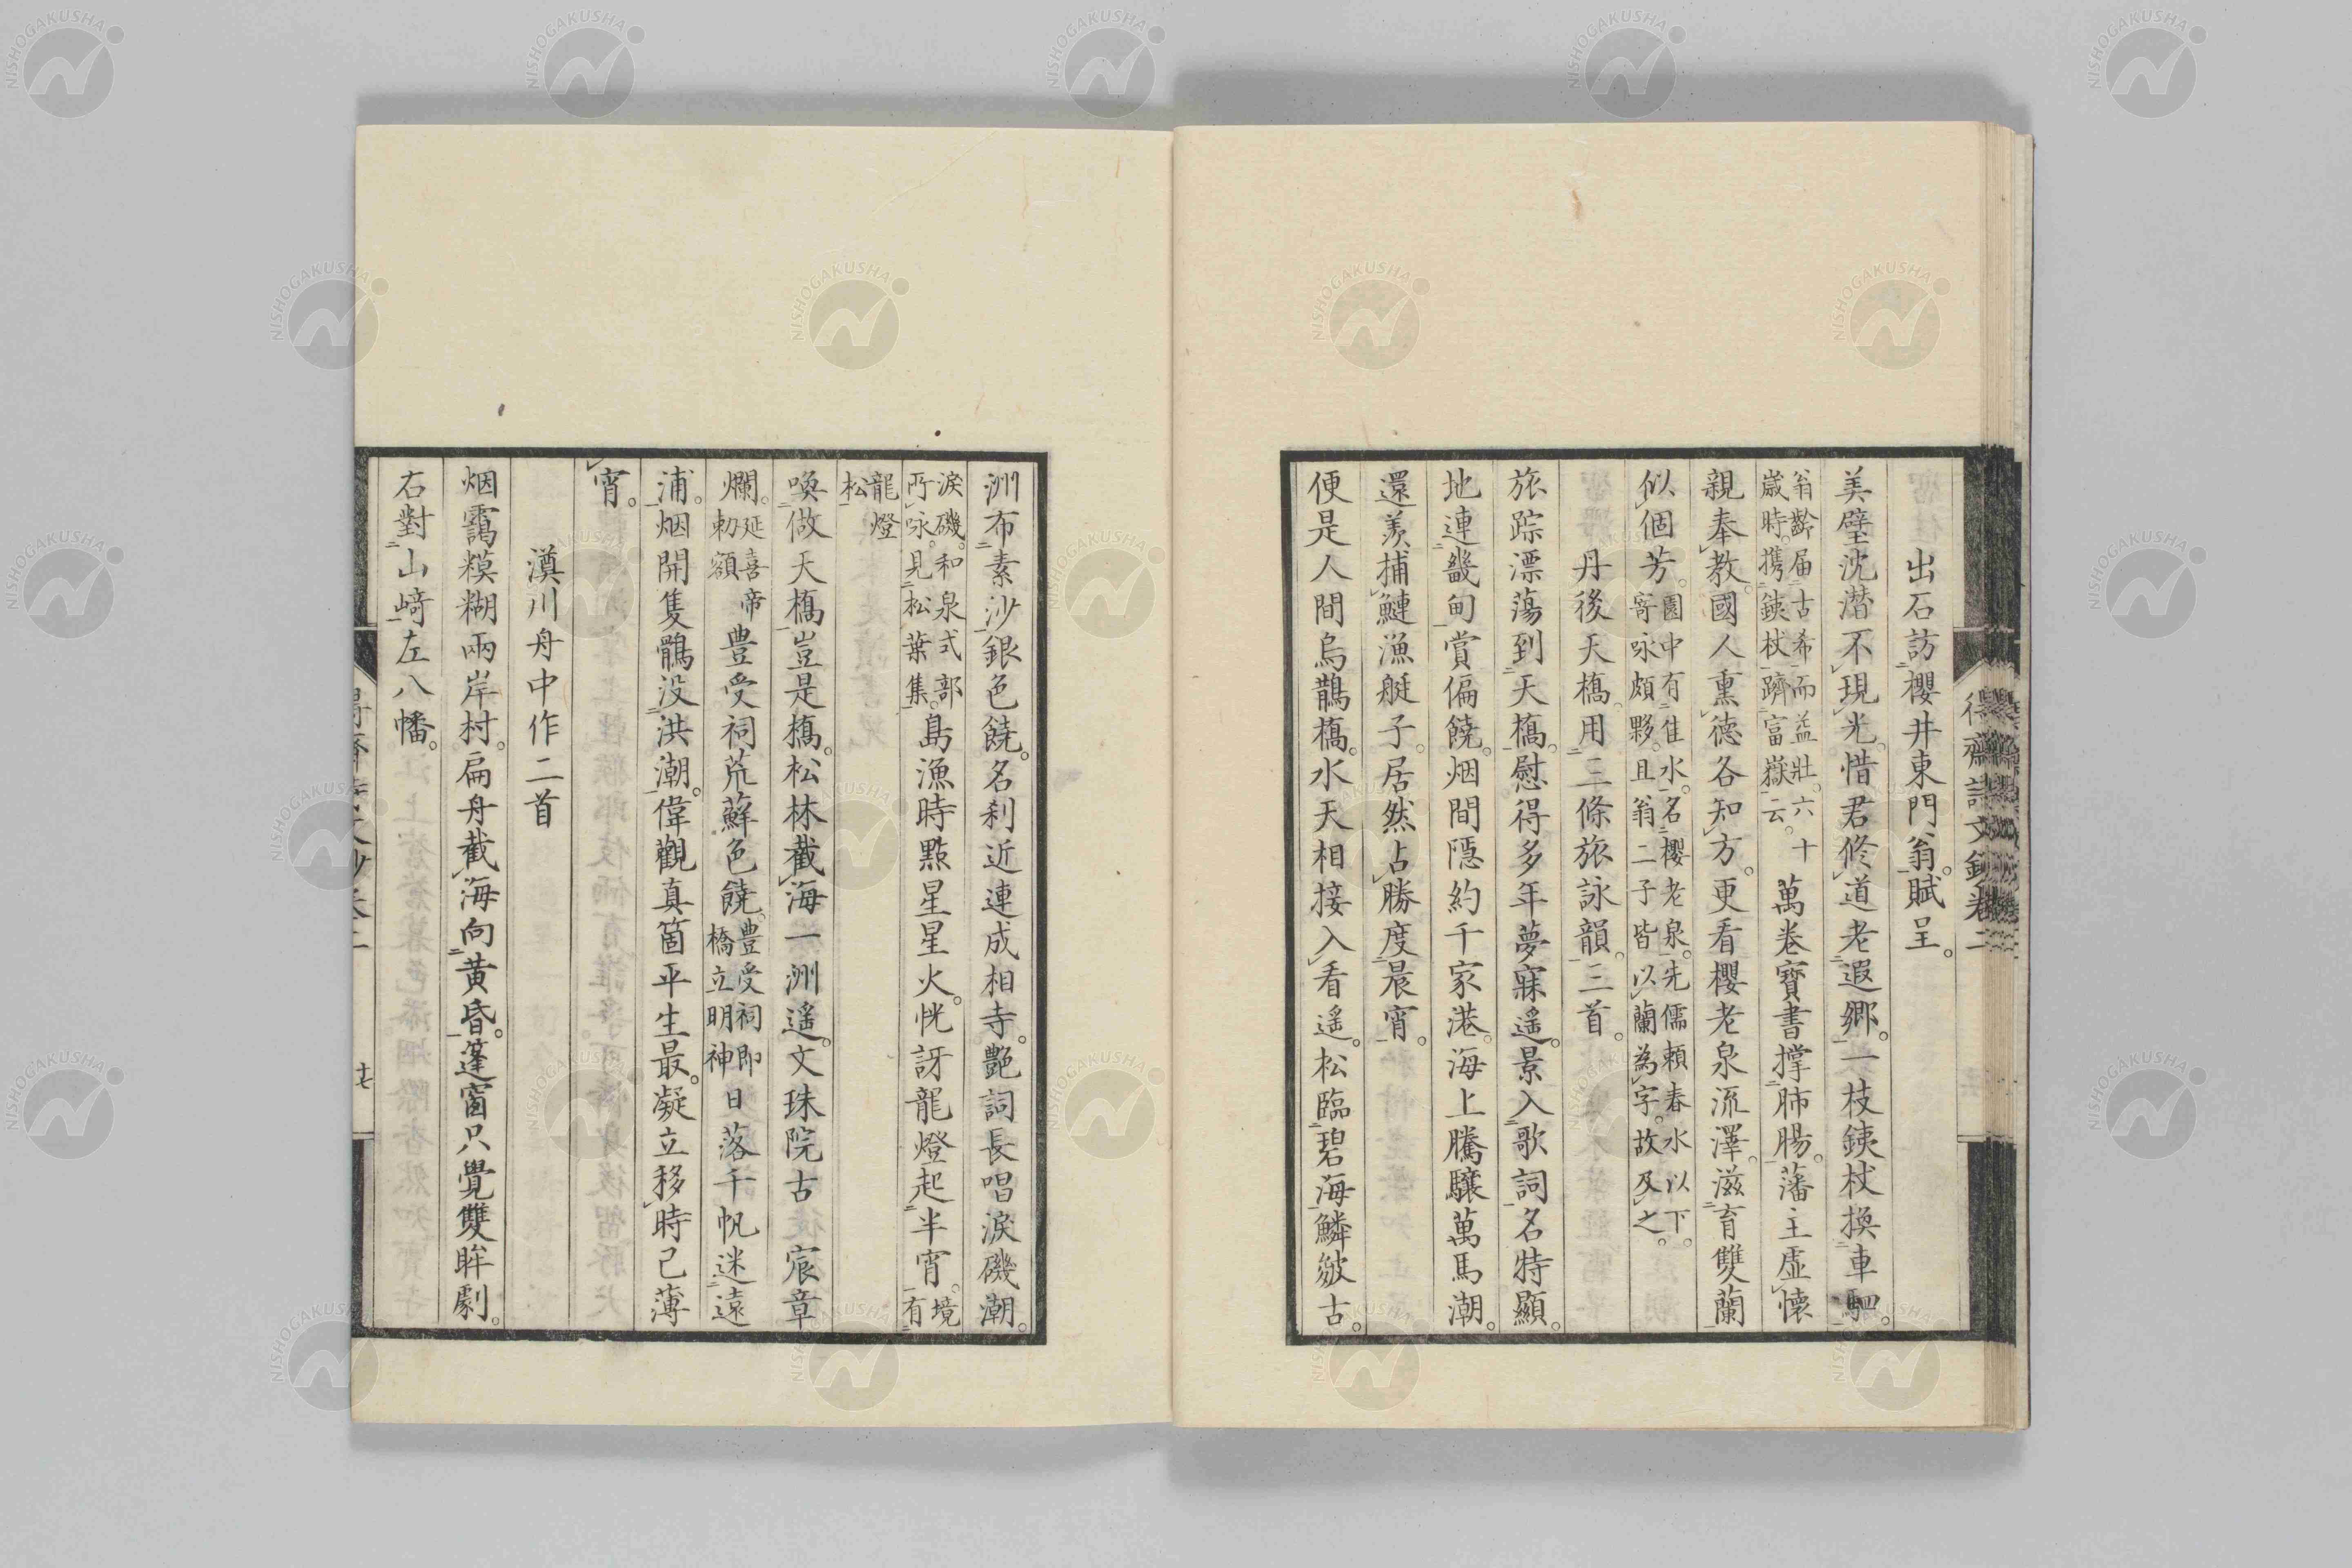 出石訪櫻井東門翁。賦呈。
美璧沈潜不現光。惜君修道老遐郷。一枝銕杖換車駟。
翁齡届古希而益壯。六十
歳時。携銕杖躋富嶽云。
萬卷寶書撑肺腸。藩主虚懷
親奉教。國人熏德各知方。更看櫻老泉流澤。滋育雙蘭
似個芳。
園中有佳水。名櫻老泉。先儒頼春水以下。
寄咏頗夥。且翁二子皆以蘭為字。故及之。
丹後天橋。用三條旅詠韻。三首。
旅踪漂蕩到天橋。慰得多年夢寐遥。景入歌詞名特顯。
地連畿甸賞偏饒。烟間隱約千家港。海上騰驤萬馬潮。
還羨捕鰱漁艇子。居然占勝度晨宵。
便是人間烏鵲橋。水天相接入看遥。松臨碧海鱗皴古。
洲布素沙銀色饒。名刹近連成相寺。艷詞長唱涙磯潮。
涙磯。和泉式部
所咏。見松葉集。
島漁時點星星火。恍訝龍燈起半宵。
境
有
龍燈
松
喚做天橋豈是橋。松林截海一洲遥。文珠院古宸章
爛。
延喜帝
勅額
豊受祠荒蘚色饒。
豊受祠即
橋立明神
日落千帆迷遠
浦。烟開隻鶻没洪潮。偉觀真箇平生最。凝立移時已薄
宵。
澱川舟中作二首
烟靄糢糊兩岸村。扁舟截海向黄昏。篷窗只覺雙眸劇。
右對山﨑左八幡。
得齋詩文鈔卷二
NISHOGAKUSHA